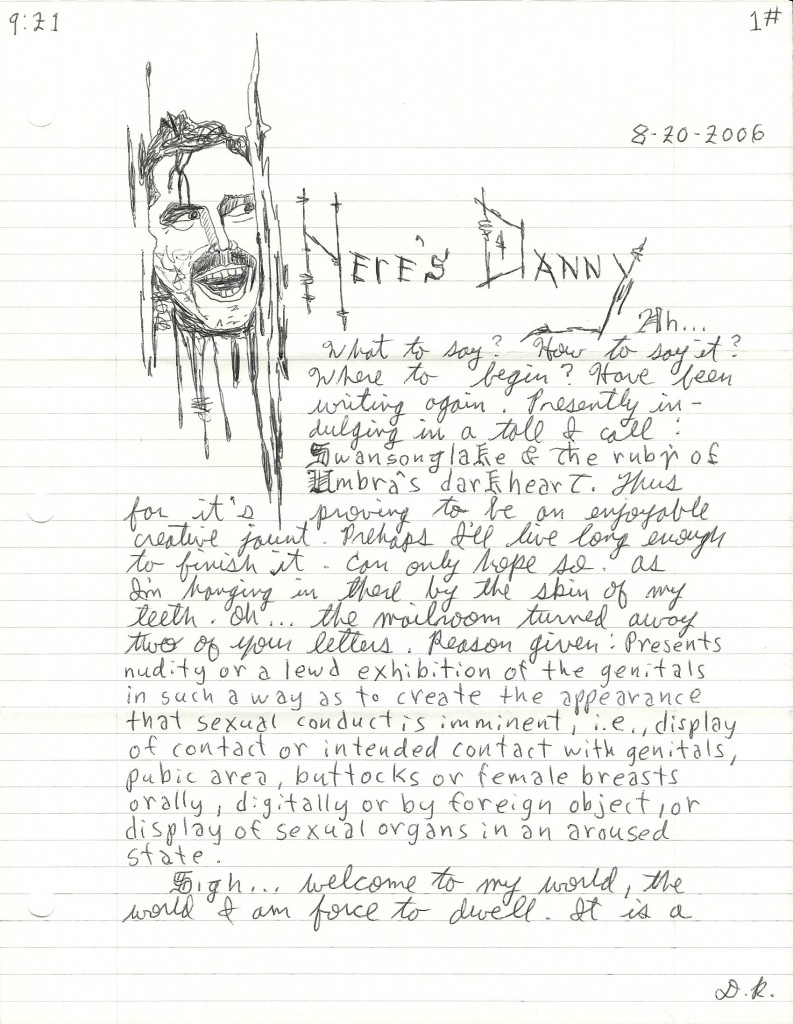 9:21
1#
8-20-2006
Here's Danny
Ah...
What to say? How to say it?
Where to begin? Have been
writing again. Presently in-
dulging in a tale I call:
Swansonglake & the ruby of
Umbra's darkheart. Thus
for it's proving to be an enjoyable
creative jaunt. Prehaps I'll live long enough
to finish it. Can only hope so. as
I'm hanging in there by the skin of my
teeth. Oh... the mailroom turned away
two of your letters. Reason given: Presents
nudity or a lewd exhibition of the genitals
in such a way as to create the appearance
that sexual conduct is imminent, i.e., display
of contact or intended contact with genitals,
pubic area, buttocks or female breasts
orally, digitally or by foreign object, or
display of sexual organs in an aroused
state.
Sigh... welcome to my world, the
world I am force to dwell. It is a
D.R.